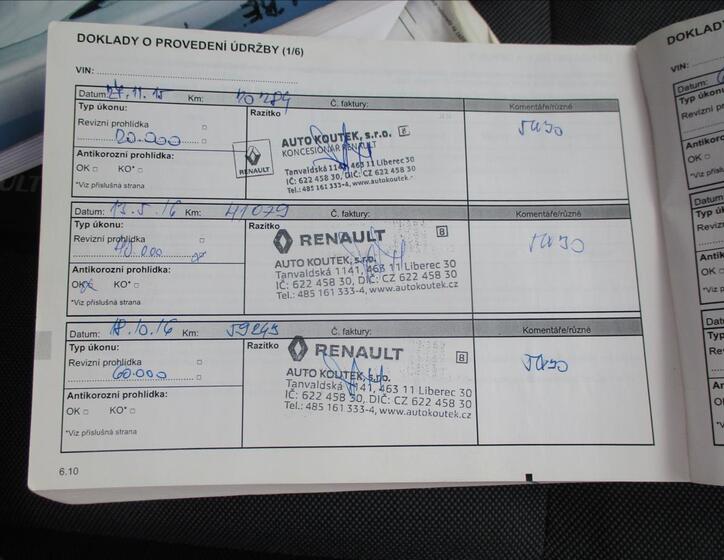 DOKLADY O PROVEDENÍ ÚDRŽBY (1/6)
VIN:
Datum: 27.11.15 Km: 20289 Č. faktury: Komentáře/různé
Typ úkonu: Razítko
Revizní prohlídka
20.000
Antikorozní prohlídka:
OK KO*
*Viz příslušná strana
RENAULT
AUTO KOUTEK, s.r.o. 8
KONCESIONÁŘ RENAULT
Tanvaldská 1141, 463 11 Liberec
IČ: 622 458 30, DIČ: CZ 622 458 30
Tel.: 485 161 333-4, www.autokoutek.cz
5W30
Datum: 13.5.16 Km: 41079 Č. faktury: Komentáře/různé
Typ úkonu: Razítko
Revizní prohlídka
40.000
Antikorozní prohlídka:
OK KO*
*Viz příslušná strana
RENAULT 8
AUTO KOUTEK, s.r.o.
Tanvaldská 1141, 463 11 Liberec 30
IČ: 622 458 30, DIČ: CZ 622 458 30
Tel.: 485 161 333-4, www.autokoutek.cz
5W30
Datum: 18.10.16 Km: 59245 Č. faktury: Komentáře/různé
Typ úkonu: Razítko
Revizní prohlídka
60.000
Antikorozní prohlídka:
OK KO*
*Viz příslušná strana
RENAULT 8
AUTO KOUTEK, s.r.o.
Tanvaldská 1141, 463 11 Liberec 30
IČ: 622 458 30, DIČ: CZ 622 458 30
Tel.: 485 161 333-4, www.autokoutek.cz
5W30
6.10
DOKLADY
VIN:
Datum:
Typ úkonu:
Revizní
Antikorozní
OK
*Viz příslušná